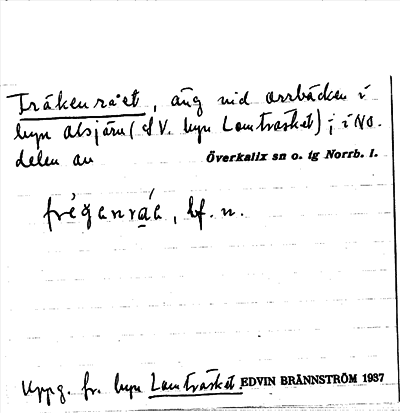 Fräkenrået, äng vid orrbäcken i
byn Alsjärv (SV. byn Lomträsket); i NO.
delen av Överkalix sn o. tg Norrb. l.
bf. n.
Uppg. fr. byn Lomträsket. EDVIN BRÄNNSTRÖM 1937